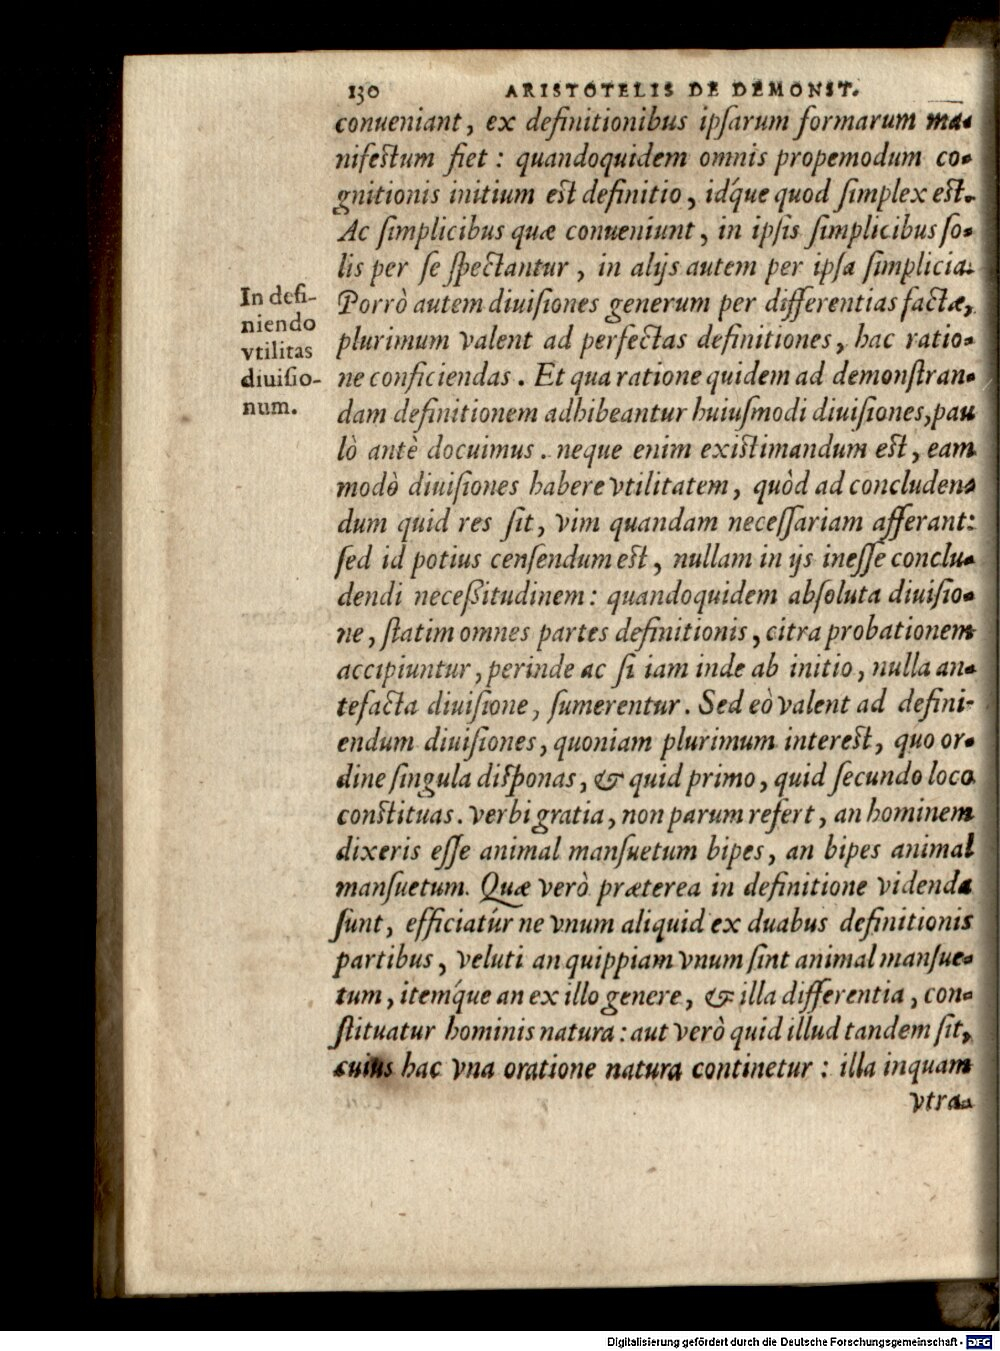 130 ARISTOTELIS DE DEMONST.
conueniant, ex definitionibus ipſarum formarum ma-
nifeſtum fiet: quandoquidem omnis propemodum co-
gnitionis initium eſt definitio, id́que quod ſimplex eſt.
Ac ſimplicibus quæ conueniunt, in ipſis ſimplicibus ſo-
lis per ſe ſpectantur, in alijs autem per ipſa ſimplicia.
Porrò autem diuiſiones generum per differentias factæ,
plurimum valent ad perfectas definitiones, hac ratio-
ne conficiendas. Et qua ratione quidem ad demonſtran-
dam definitionem adhibeantur huiuſmodi diuiſiones, pau
lò antè docuimus. neque enim exiſtimandum eſt, eam
modò diuiſiones habere vtilitatem, quòd ad concluden-
dum quid res ſit, vim quandam neceſſariam afferant:
ſed id potius cenſendum eſt, nullam in ijs ineſſe conclu-
dendi neceßitudinem: quandoquidem abſoluta diuiſio-
ne, ſtatim omnes partes definitionis, citra probationem
accipiuntur, perinde ac ſi iam inde ab initio, nulla an-
tefacta diuiſione, ſumerentur. Sed eò valent ad defini-
endum diuiſiones, quoniam plurimum intereſt, quo or-
dine ſingula diſponas, & quid primo, quid ſecundo loco
conſtituas. verbi gratia, non parum refert, an hominem
dixeris eſſe animal manſuetum bipes, an bipes animal
manſuetum. Quæ verò præterea in definitione videnda
ſunt, efficiatúr ne vnum aliquid ex duabus definitionis
partibus, veluti an quippiam vnum ſint animal manſue-
tum, iteḿque an ex illo genere, & illa differentia, con-
ſtituatur hominis natura: aut verò quid illud tandem ſit,
cuius hac vna oratione natura continetur: illa inquam
vtra-
In defi-
niendo
vtilitas
diuiſio-
num.
Digitalisierung gefördert durch die Deutsche Forschungsgemeinschaft - DFG